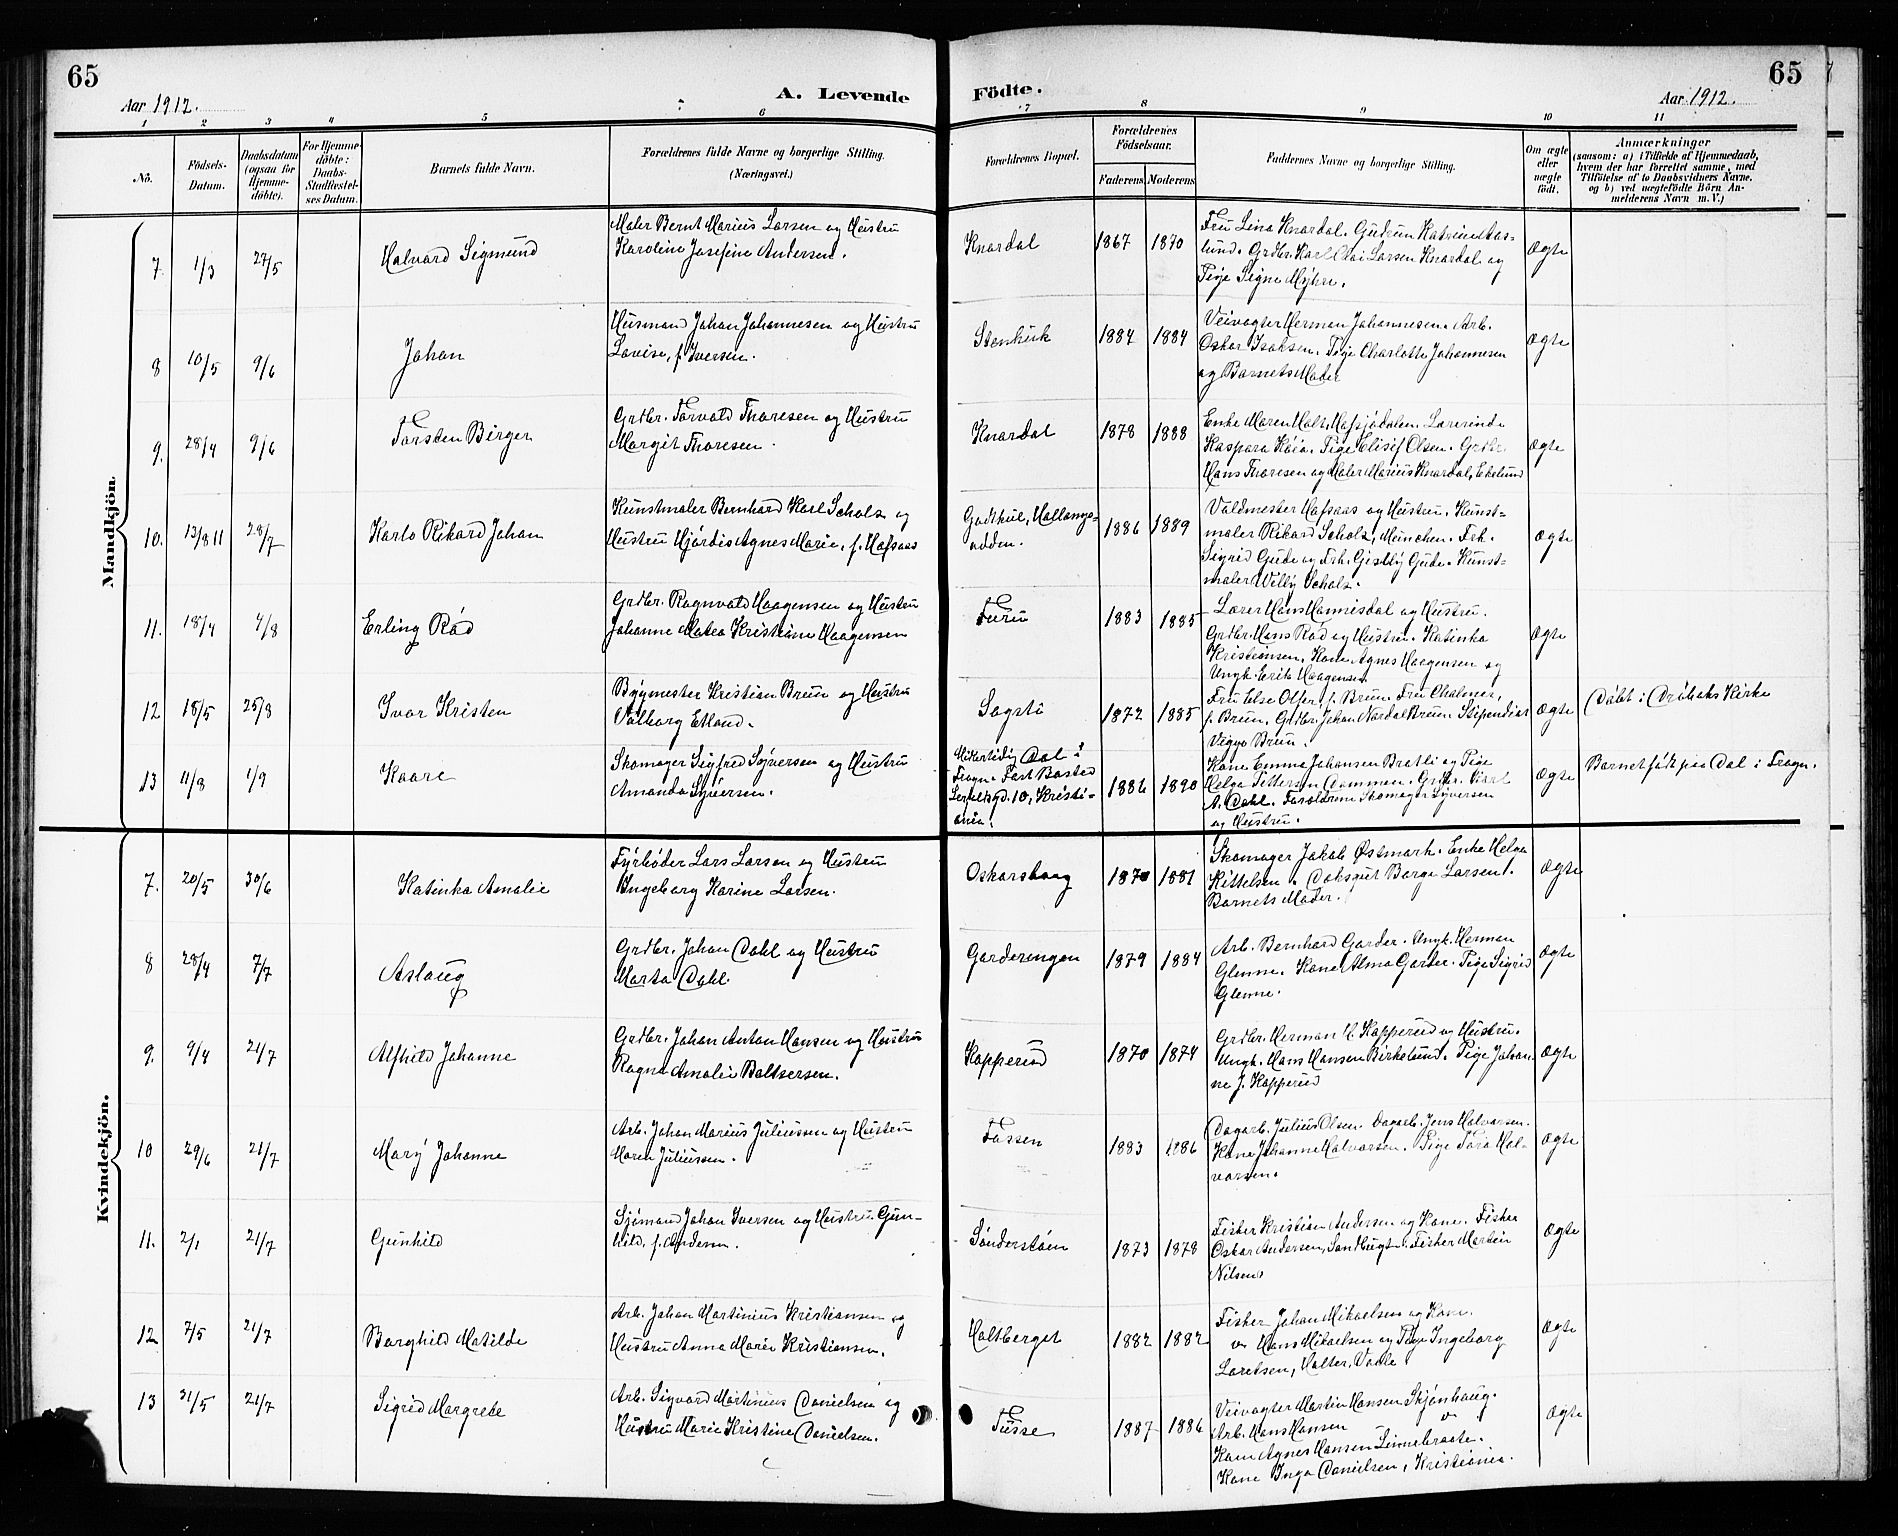 65
65
Aar 1912.
A. Levende
Födte.
Aar 1912.
1 2 3 4 5 6 7 8 9 10 11
No.
Födsels-
Datum.
Daabsdatum
(ogsaa for
Hjemme-
döbte).
For Hjemme-
döbte:
Daabs-
Stadfæstel-
ses Datum.
Barnets fulde Navn.
Forældrenes fulde Navne og borgerlige Stilling.
(Næringsvei.)
Forældrenes Bopæl.
Forældrenes
Födselsaar.
Faderens Moderens
Faddernes Navne og borgerlige Stilling.
Om ægte
eller
uægte
födt.
Anmærkninger
(saasom: a) i Tilfælde af Hjemmedaab,
hvem der har forrettet samme, med
Tilföielse af to Daabsvidners Navne,
og b) ved uægtefödte Börn An-
melderens Navn m. V.)
Mandkjön
7. 1/3 27/5 Halvard Sigmund
Maler Bernt Marius Larsen og Hustru
Karoline Josefine Andersen.
Knardal 1867 1870
Fru Lina Knardal. Gudrun Katrine Aas-
lund. Grdbr. Karl Olai Larsen Knardal og
Pige Signe Myhre.
Ægte
8 10/5 9/6 Johan
Husmand Johan Johannesen og Hustru
Lovise, f. Iversen.
Stenkirk 1884 1884
Veivogter Herman Johannesen. Arb.
Oskar Isaksen. Pige Charlotte Johannesen
og Barnets Moder
Ægte
9. 28/4 9/6 Torsten Birger
Grdbr. Torvald Thoresen og Hustru
Margit Thoresen.
Knardal 1878 1888
Enke Maren Holt, Hafsjødalen. Lærerinde
Kaspara Køia. Pige Elisef Olsen. Grdbr.
Hans Thoresen og Maler Marius Knardal, Ekelund
Ægte
10. 13/8 11 28/7 Karlo Rikard Johan
Kunstmaler Bernhard Karl Scholz og
Hustru Hjørdis Agnes Marie, f. Hafsaas
Godthul, Hallangs-
odden.
1886 1889
Valdmester Hafsaas og Hustru. Kunst-
maler Rikard Scholz, München. Frk.
Sigrid Gude og Frk. Gislby Gude. Kunst-
maler Villy Scholz.
Ægte
11. 18/4 4/8 Erling Rød
Grdbr. Ragnvald Haagensen og Hustru
Johanne Matea Kristiane Haagensen
Furu 1883 1885
Lærer Hans Hannisdal og Hustru.
Grdbr. Hans Rød og Hustru. Katinka
Kristiansen. Kone Agnes Haagensen og
Ungk. Erik Haagensen.
Ægte
12 18/5 25/8 Ivar Kristen
Bygmester Kristian Bruun og Hustru
Valborg Eklund.
Sogsti 1872 1885
Fru Else Olfer, f. Bruun. Fru Chalmer,
f. Bruun. Grdbr. Johan Nordal Bruun. Stipendiat
Viggo Bruun.
Ægte
Døbt i Drøbaks Kirke
13 11/8 1/9 Kaare
Skomager Sigfred Syversen og Hustru
Amanda Syversen.
Midlertidig Dal i
Frogn. Fast Bosted
10, Kristi-
ania.
1886 1890
Kone Emma Johansen Bratli og Pige
Helga Pettersen Dammen. Grdbr. Karl
A. Dahl. Forældrene Skomager Syversen
og Hustru.
Ægte
Barnet født paa Dal i Frogn.
Kvindekjön.
7. 20/5 30/6 Katinka Amalie
Fyrbøder Lars Larsen og Hustru
Ingeborg Karine Larsen.
Oskarsborg 1870 1881
Skomager Jakob Østmark. Enke Helga
Kittelsen. Daksgut Borge Larsen.
Barnets Moder.
Ægte
8 28/4 7/7 Aslaug
Grdbr. Johan Dahl og Hustru
Marta Dahl.
Garderengen 1879 1884
Arb. Bernhard Garder. Ungk. Herman
Glenne. Kone Alma Garder. Pige Sigrid
Glenne.
Ægte
9. 9/4 21/7 Alfhild Johanne
Grdbr. Johan Anton Hansen og Hustru
Ragna Amalie Baltsersen.
Kopperud 1870 1874
Grdbr. Herman H. Kopperud og Hustru.
Ungk. Hans Hansen Birkelund. Pige Johan-
ne J. Kopperud
Ægte
10 29/6 21/7 Mary Johanne
Arb. Johan Marius Juliussen og Hustru
Maren Juliussen.
Fossen 1883 1886
Dagarb. Julius Olsen. Dagarb. Jens Halvorsen.
Kone Johanne Halvorsen. Pige Tora Hal-
vorsen.
Ægte
11. 2/1 21/7 Gunhild
Sjømand Johan Iversen og Hustru Gun-
hild, f. Andersen.
Sønderstøen 1873 1878
Fisker Kristian Andersen og Kone. Fisker
Oskar Andersen, Sandbugt. Fisker Martin
Nilsen
Ægte
12 7/5 21/7 Borghild Matilde
Arb. Johan Martinius Kristiansen og
Hustru Anna Marie Kristiansen.
Holtberget 1882 1882
Fisker Johan Mikaelsen og Kone.
Hans Mikaelsen og Pige Ingeborg
Loretsen, Halter. Vaale
Ægte
13 21/5 21/7 Sigrid Margrete
Arb. Sigvard Martinius Danielsen og
Hustru Marie Kristine Danielsen.
Tusse 1887 1886
Veivogter Martin Hansen Skjønhaug.
Arb. Hans Hansen
Kone Agnes Hansen Linnebraate.
Kone Inga Danielsen, Kristiania.
Ægte